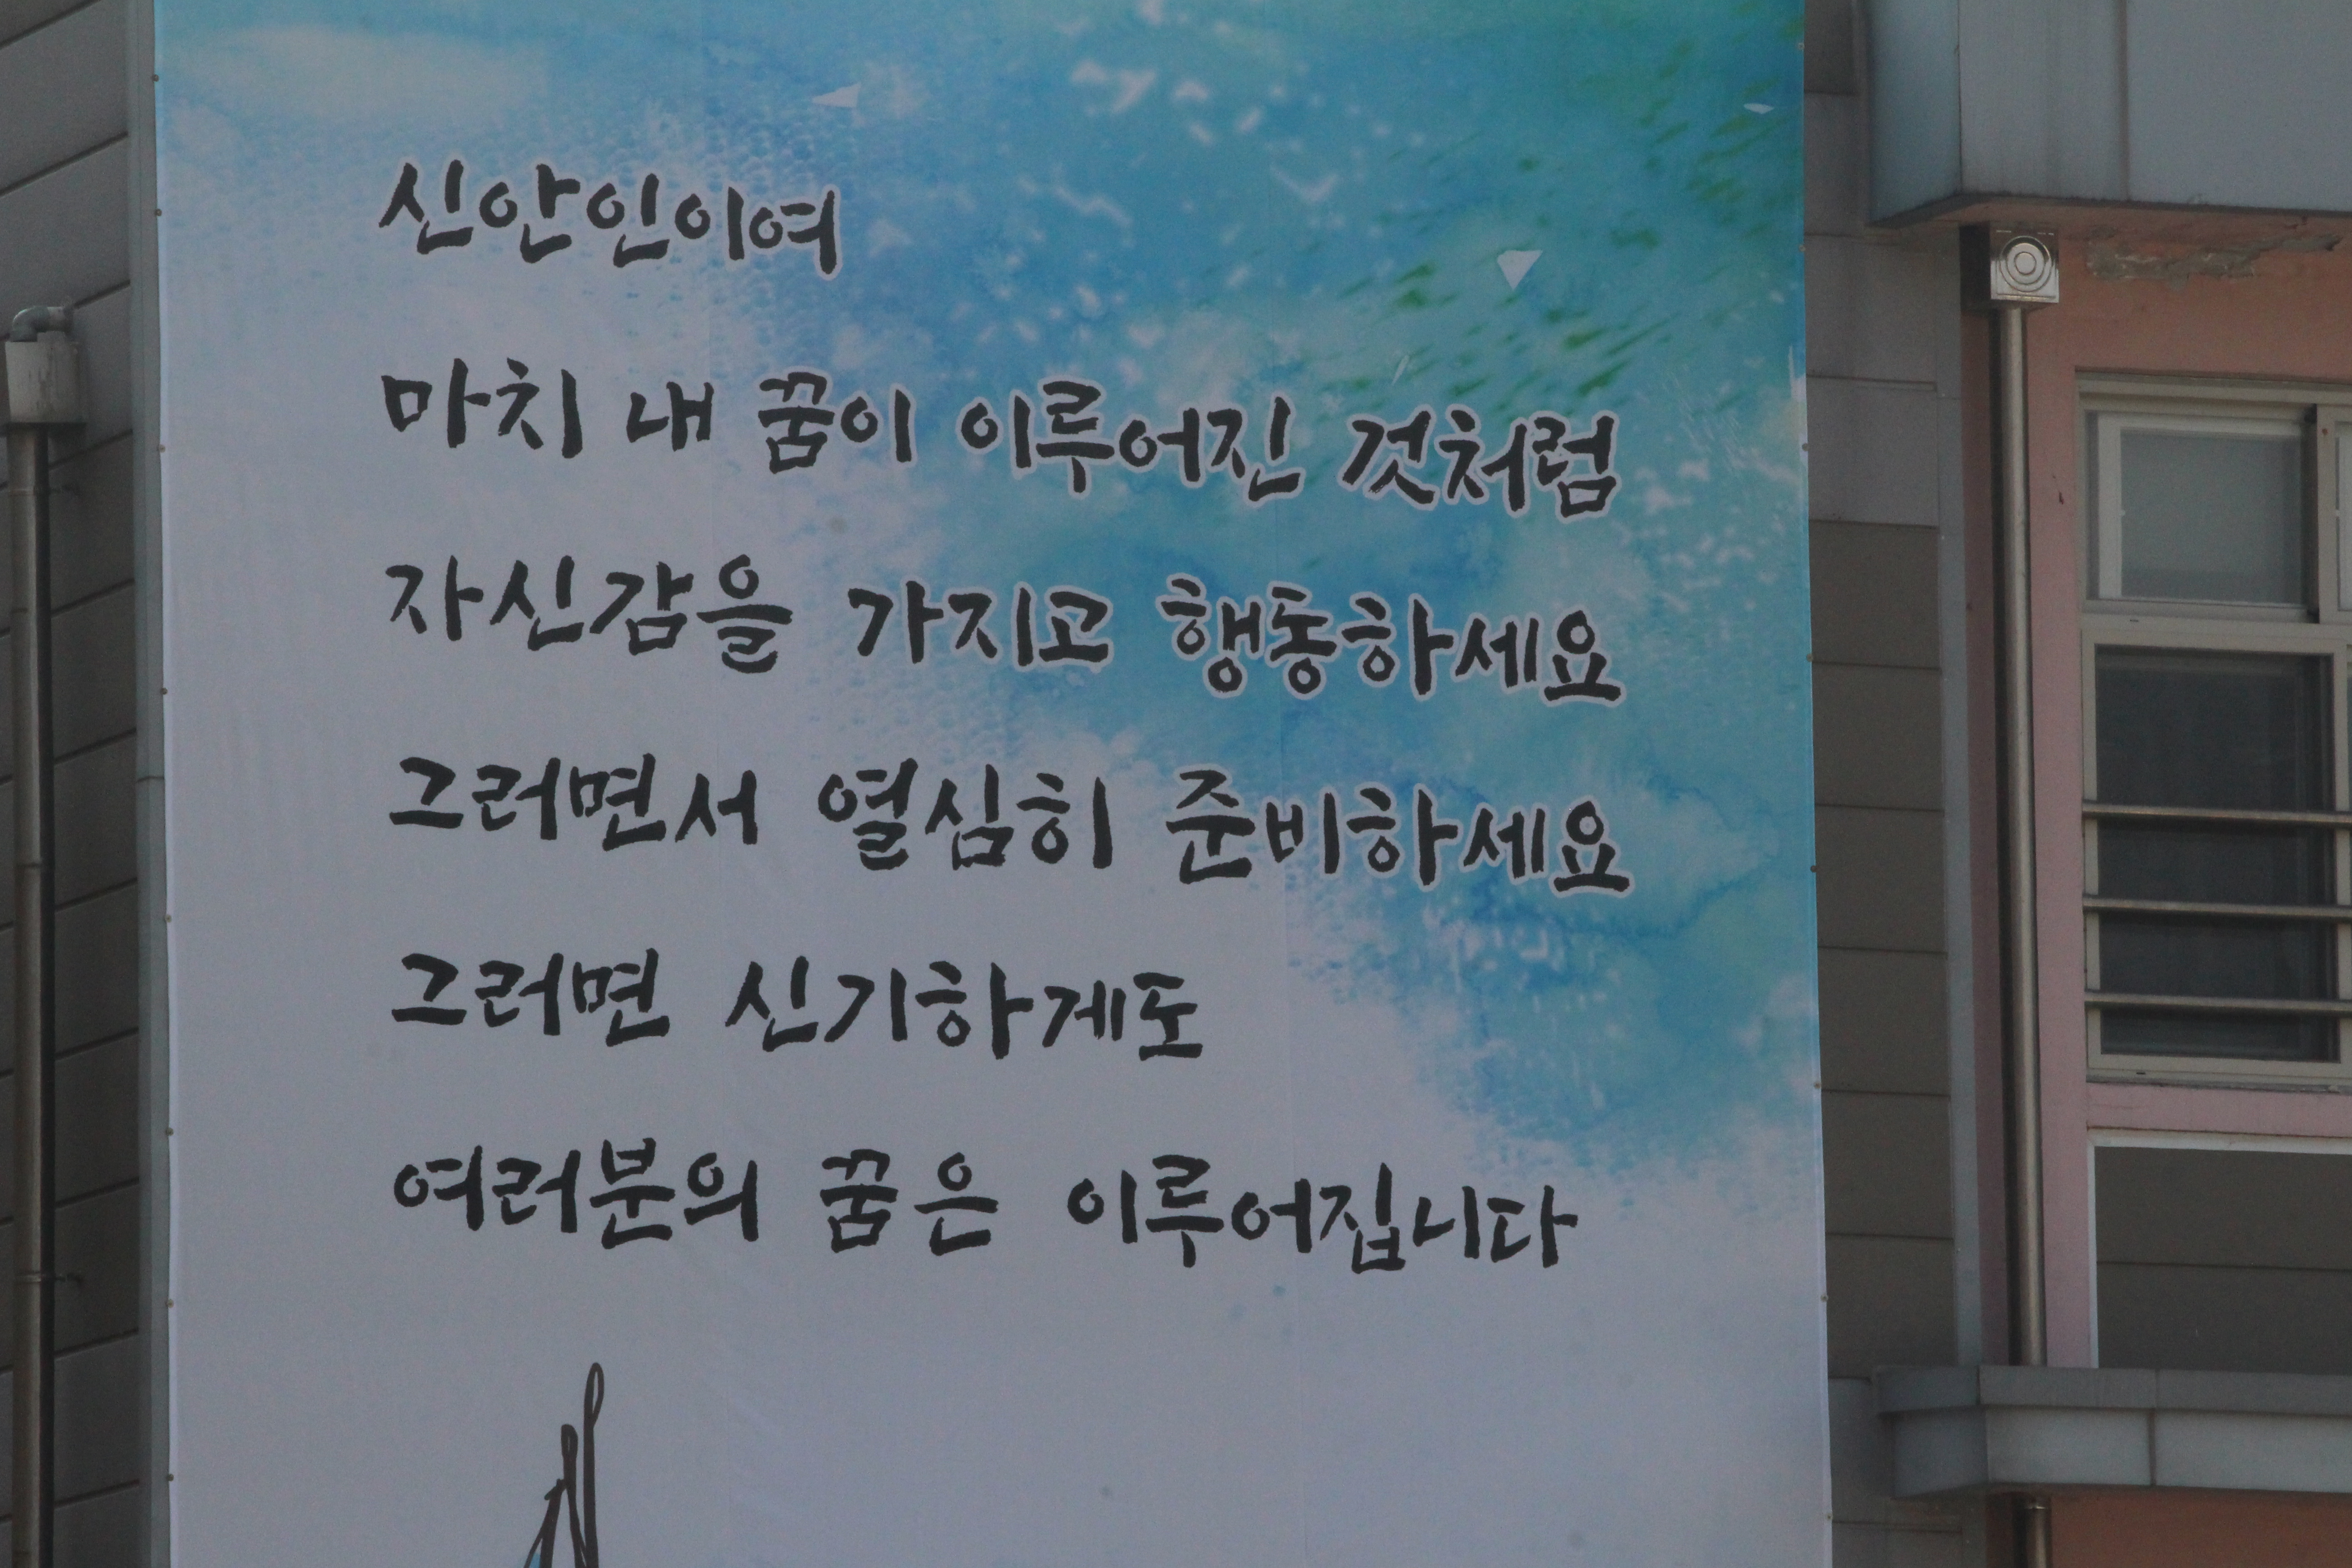 신안인이여
마치 내 꿈이 이루어진 것처럼
자신감을 가지고 행동하세요
그러면서 열심히 준비하세요
그러면 신기하게도
여러분의 꿈은 이루어집니다